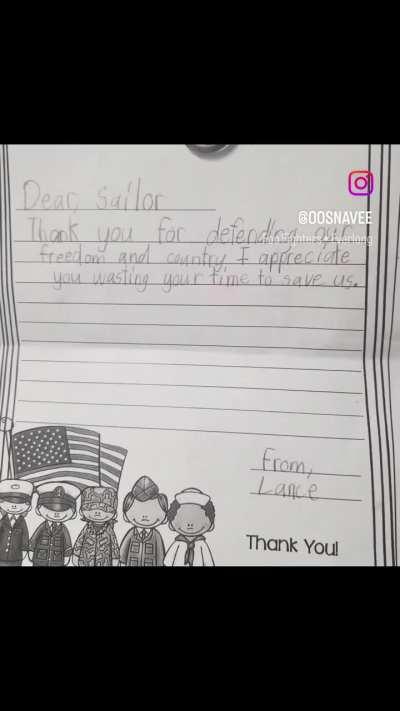 @OOSNAVEE
Dear, Sailor
Thank you for defending our
freedom and country I appreciate
you wasting your time to save us.
From,
Lance
Thank You!